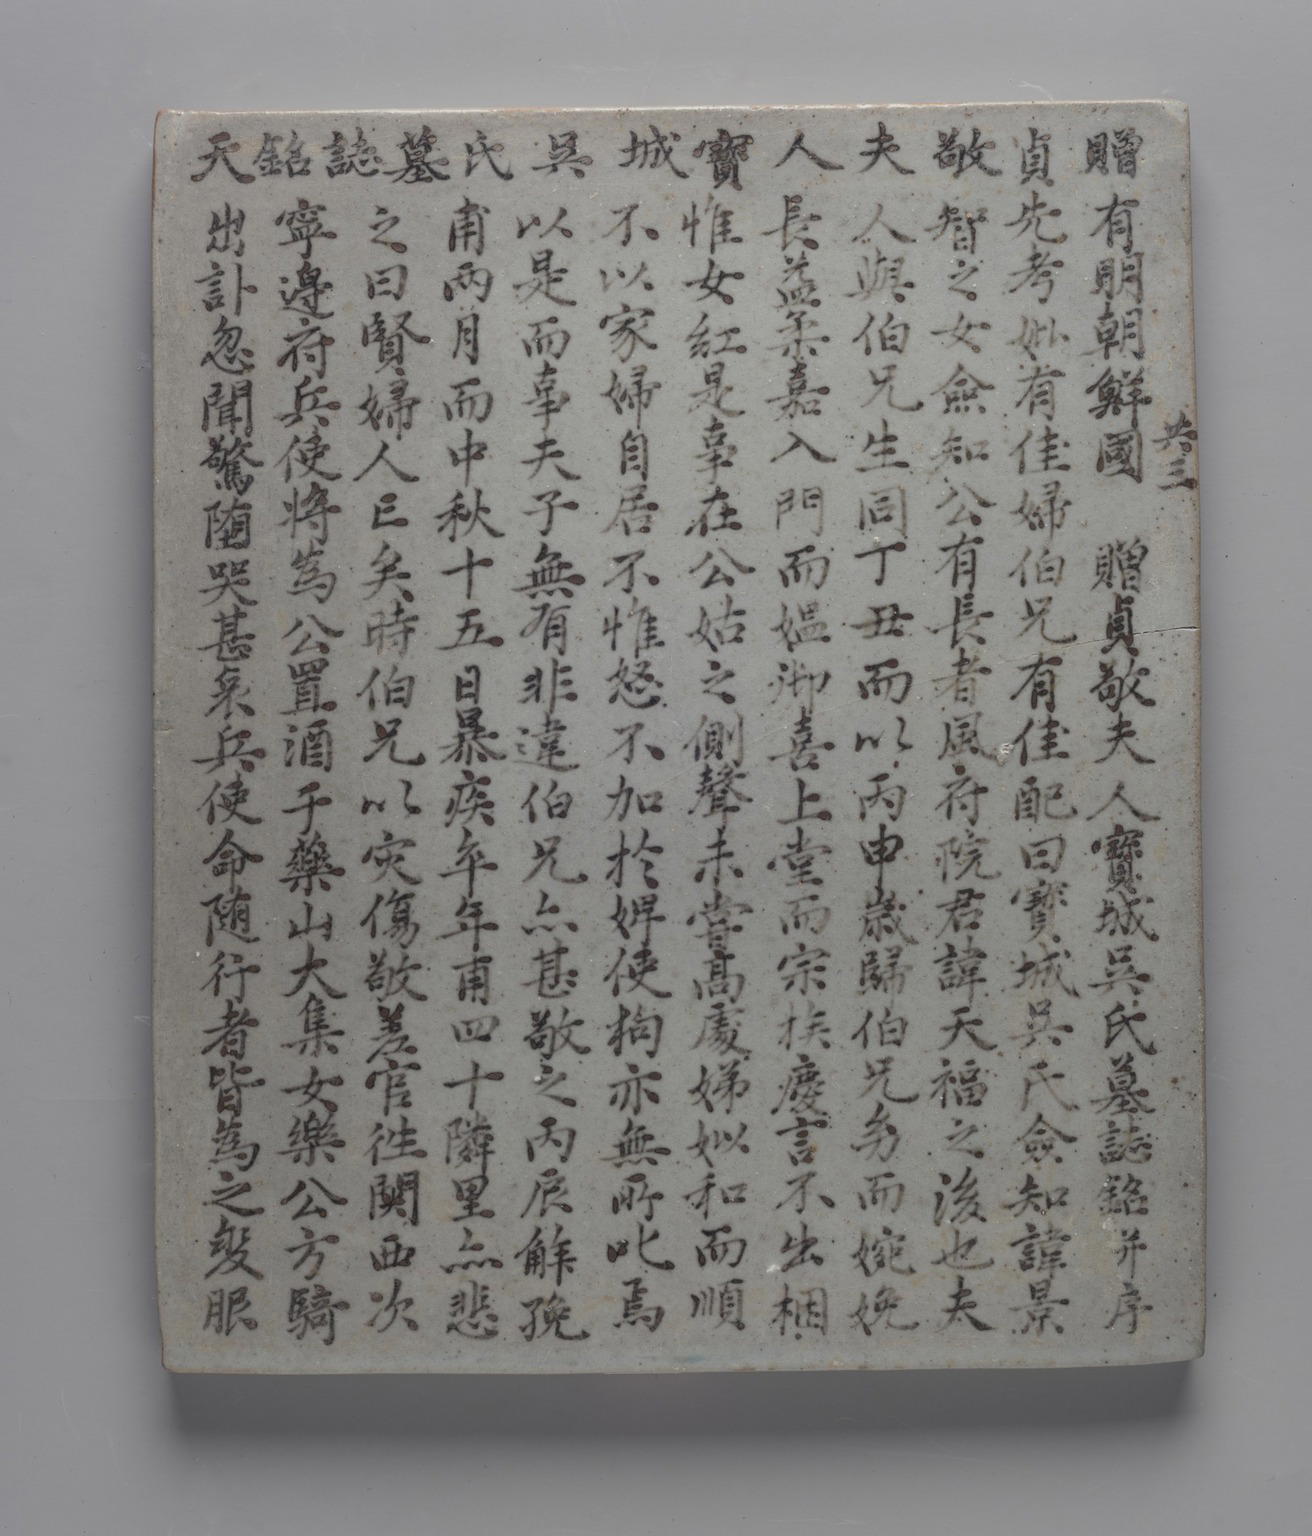 贈貞敬夫人寶城吳氏墓誌銘天
共三
有明朝鮮國 贈貞敬夫人寶城吳氏墓誌銘并序
先考妣有佳婦伯兄有佳配曰寶城吳氏僉知諱景
智之女僉知公有長者風府院君諱天福之後也夫
人與伯兄生同丁丑而以丙申歲歸伯兄幼而婉娩
長益柔嘉入門而媼御喜上堂而宗族慶言不出梱
惟女紅是事在公姑之側聲未嘗高處娣姒和而順
不以家婦自居不惟怒不加於婢使狗亦無所叱焉
以是而事夫子無有非違伯兄亦甚敬之丙辰觧娩
甫兩月而中秋十五日暴疾卒年甫四十隣里亦悲
之曰賢婦人已矣時伯兄以灾傷敬差官徃関西次
寧邊府兵使將為公置酒于藥山大集女樂公方騎
出訃忽聞驚堕哭甚哀兵使命随行者皆為之變服